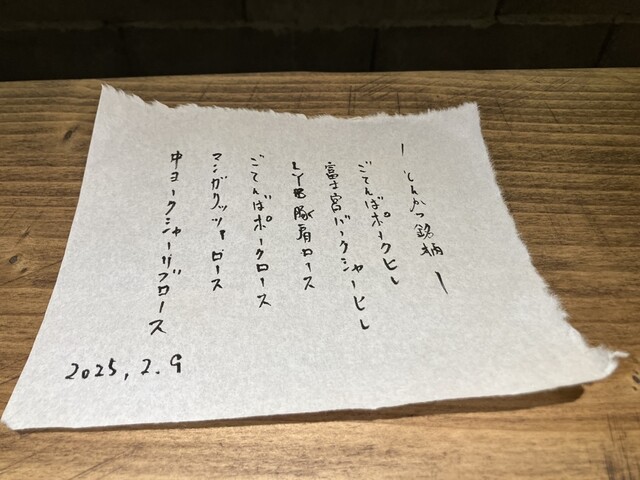 ー とんかつ銘柄 ー
ごてんばポークヒレ
富士宮バークシャーヒレ
LYB豚肩ロース
ごてんばポークロース
マンガリッツァロース
中ヨークシャーリブロース
2025,2.9